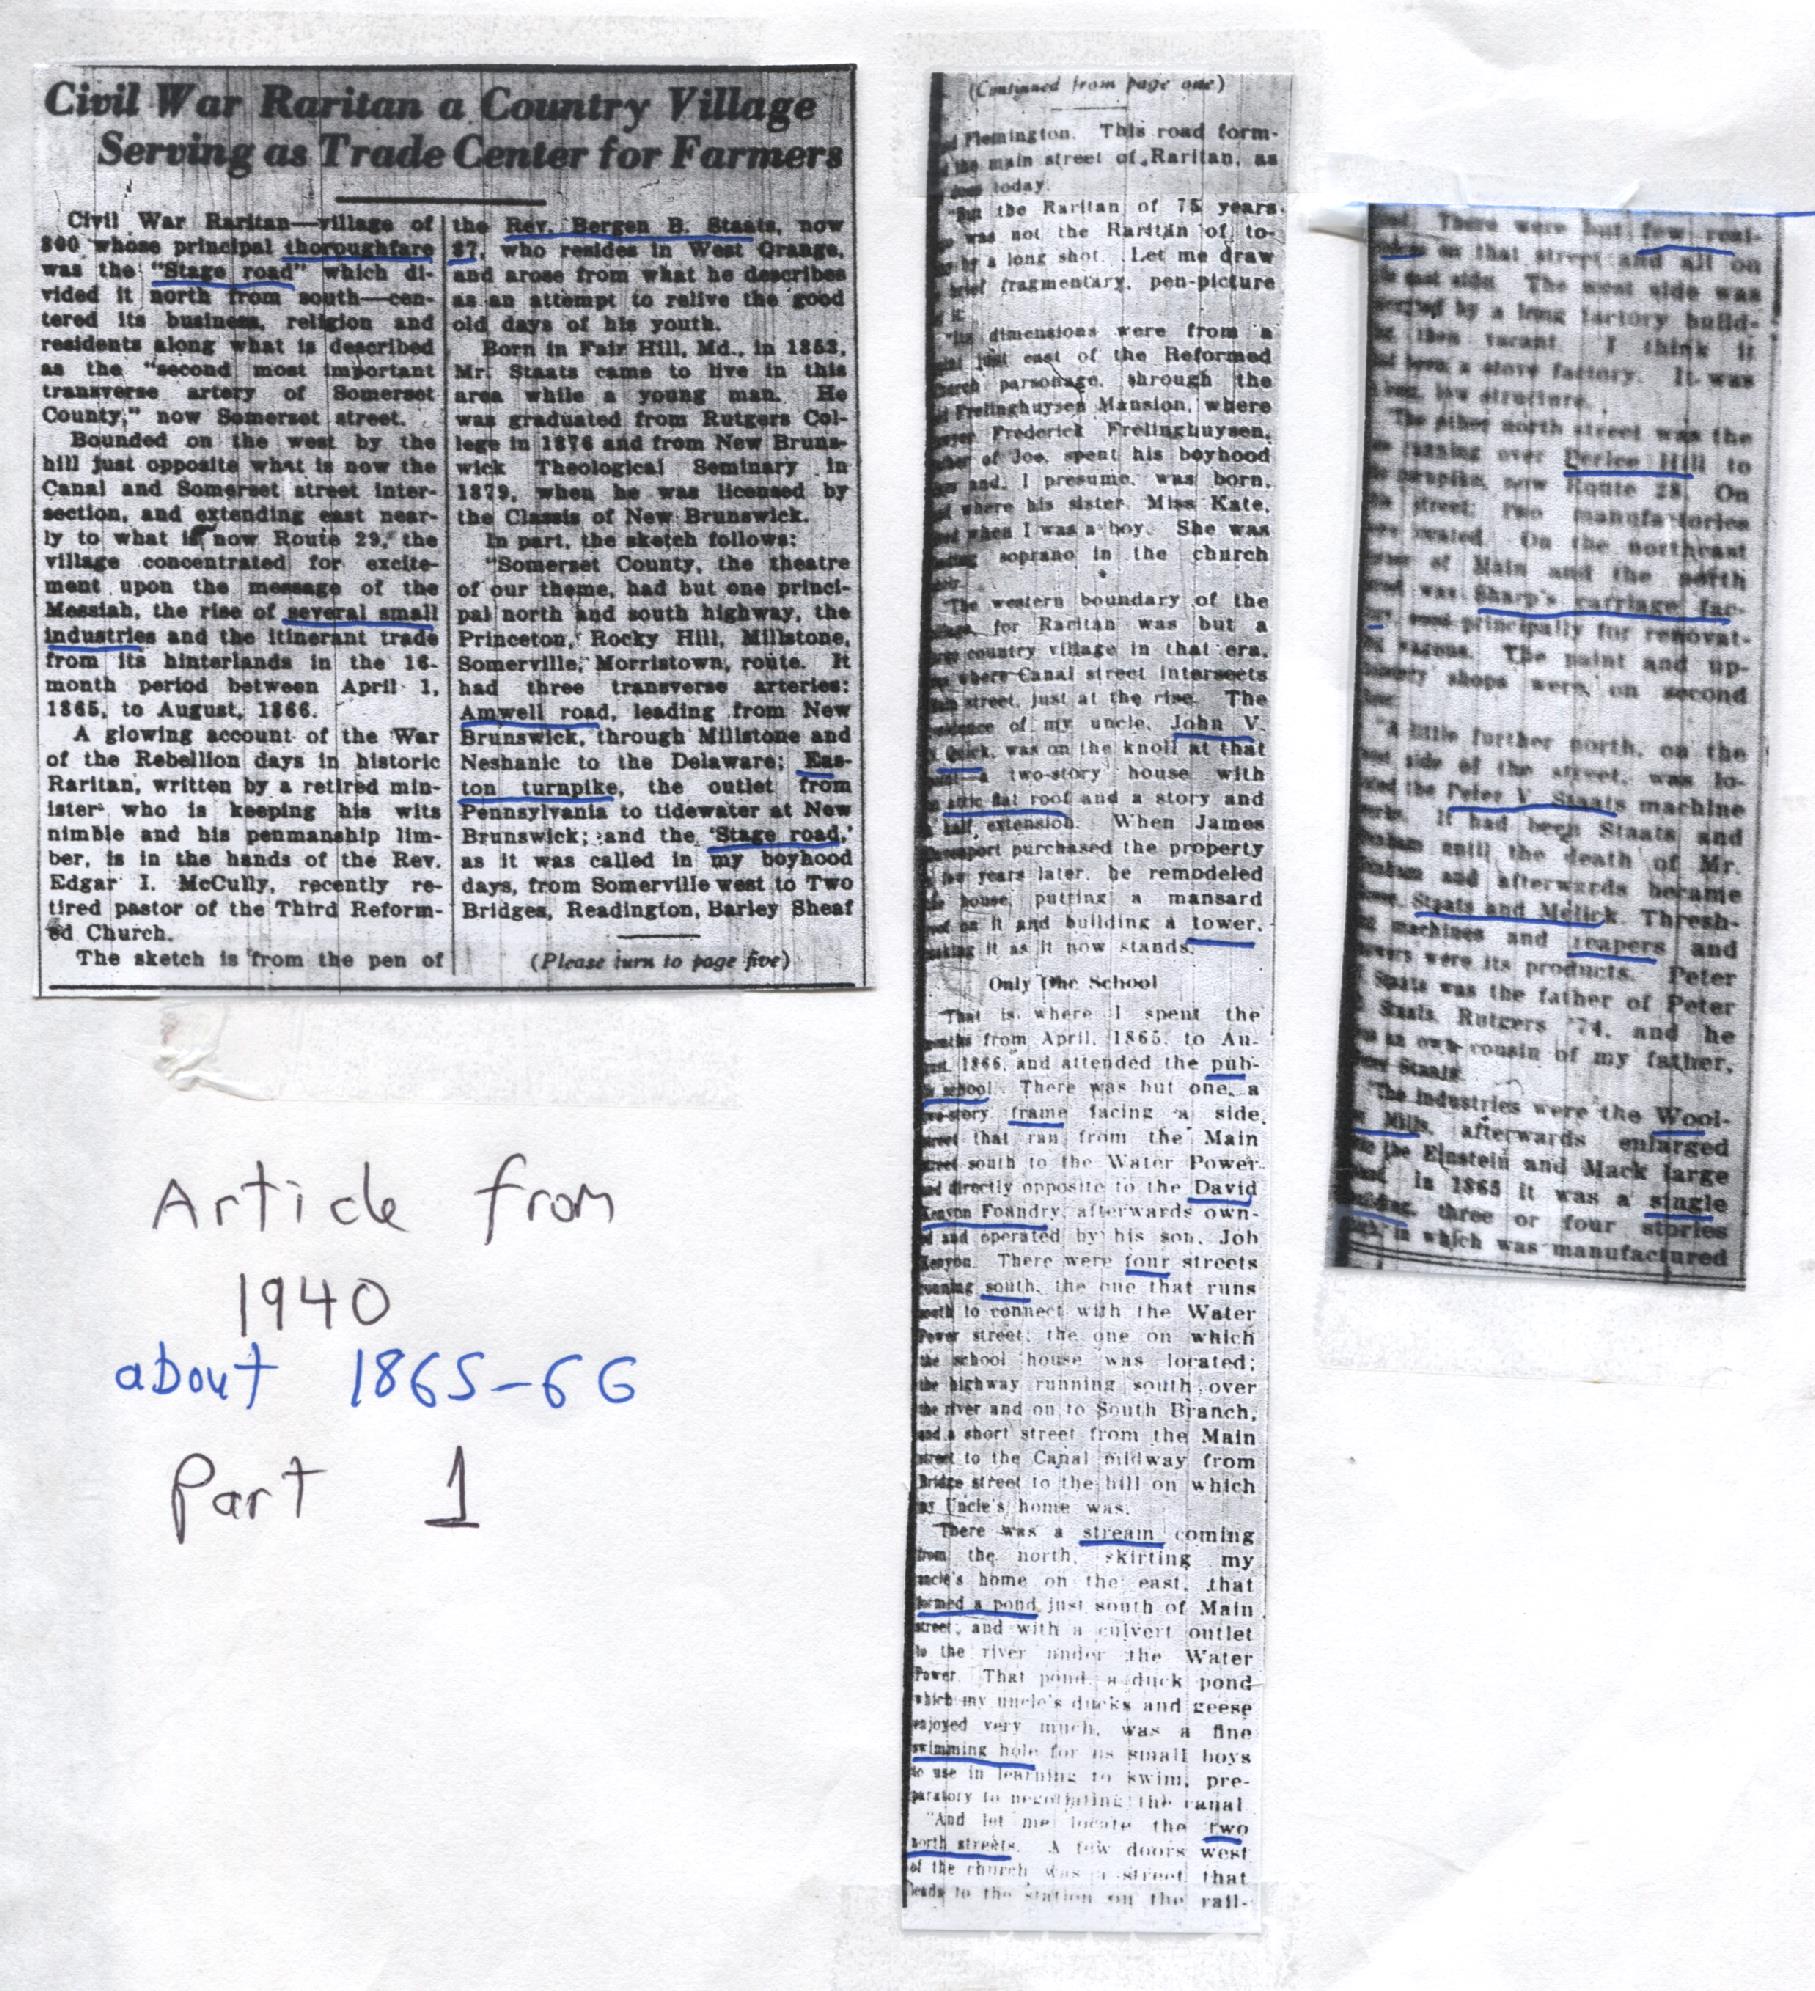 Civil War Raritan a Country Village
Serving as Trade Center for Farmers
Civil War Raritan—village of
800 whose principal thoroughfare
was the "Stage road" which di-
vided it north from south—cen-
tered its business, religion and
residents along what is described
as the "second most important
transverse artery of Somerset
County," now Somerset street.
Bounded on the west by the
hill just opposite what is now the
Canal and Somerset street inter-
section, and extending east near-
ly to what is now Route 29, the
village concentrated for excite-
ment upon the message of the
Messiah, the rise of several small
industries and the itinerant trade
from its hinterlands in the 16-
month period between April 1,
1865, to August, 1866.
A glowing account of the War
of the Rebellion days in historic
Raritan, written by a retired min-
ister who is keeping his wits
nimble and his penmanship lim-
ber, is in the hands of the Rev.
Edgar I. McCully, recently re-
tired pastor of the Third Reform-
ed Church.
The sketch is from the pen of
the Rev. Bergen B. Staats, now
87, who resides in West Orange,
and arose from what he describes
as an attempt to relive the good
old days of his youth.
Born in Fair Hill, Md., in 1853,
Mr. Staats came to live in this
area while a young man. He
was graduated from Rutgers Col-
lege in 1876 and from New Bruns-
wick Theological Seminary in
1879, when he was licensed by
the Classis of New Brunswick.
In part, the sketch follows:
"Somerset County, the theatre
of our theme, had but one princi-
pal north and south highway, the
Princeton, Rocky Hill, Millstone,
Somerville, Morristown, route. It
had three transverse arteries:
Amwell road, leading from New
Brunswick, through Millstone and
Neshanic to the Delaware; Eas-
ton turnpike, the outlet from
Pennsylvania to tidewater at New
Brunswick; and the 'Stage road,'
as it was called in my boyhood
days, from Somerville west to Two
Bridges, Readington, Barley Sheaf
(Please turn to page five)
Article from
1940
about 1865-66
Part 1
(Continued from page one)
Flemington. This road form-
the main street of Raritan, as
does today.
"But the Raritan of 75 years
was not the Raritan of to-
by a long shot. Let me draw
brief fragmentary, pen-picture
it.
"Its dimensions were from a
just east of the Reformed
parsonage, through the
Frelinghuysen Mansion, where
Frederick Frelinghuysen,
of Joe, spent his boyhood
and, I presume, was born,
where his sister, Miss Kate,
when I was a boy. She was
soprano in the church
"The western boundary of the
for Raritan was but a
country village in that era,
where Canal street intersects
street, just at the rise. The
of my uncle, John V.
Quick, was on the knoll at that
a two-story house with
flat roof and a story and
half extension. When James
purchased the property
few years later, he remodeled
house, putting a mansard
roof on it and building a tower,
making it as it now stands.
Only One School
"That is where I spent the
months from April, 1865, to Au-
1866, and attended the pub-
school. There was but one, a
two-story frame facing a side
street that ran from the Main
street south to the Water Power
and directly opposite to the David
Kenyon Foundry, afterwards own-
ed and operated by his son, Job
Kenyon. There were four streets
running south, the one that runs
south to connect with the Water
Power street; the one on which
the school house was located;
the highway running south over
the river and on to South Branch,
and a short street from the Main
street to the Canal midway from
Bridge street to the hill on which
my Uncle's home was.
"There was a stream coming
from the north, skirting my
uncle's home on the east, that
formed a pond just south of Main
street, and with a culvert outlet
to the river under the Water
Power. That pond, a duck pond
which my uncle's ducks and geese
enjoyed very much, was a fine
swimming hole for us small boys
to use in learning to swim, pre-
paratory to negotiating the canal.
"And let me locate the two
north streets. A few doors west
of the church was a street that
leads to the station on the rail-
There were but few resi-
on that street and all on
east side. The west side was
by a long factory build-
then vacant. I think it
had been a stove factory. It was
long, low structure.
"The other north street was the
running over Perlee Hill to
turnpike, now Route 28. On
street, two manufactories
were located. On the northeast
corner of Main and the north
was Sharp's carriage fac-
used principally for renovat-
wagons. The paint and up-
shops were on second
"A little further north, on the
side of the street, was lo-
the Peter V. Staats machine
works. It had been Staats and
until the death of Mr.
and afterwards became
Staats and Melick. Thresh-
machines and reapers and
mowers were its products. Peter
Staats was the father of Peter
Staats, Rutgers '74, and he
was an own cousin of my father,
Staats.
"The industries were the Wool-
Mills, afterwards enlarged
the Einstein and Mack large
In 1865 it was a single
building, three or four stories
in which was manufactured